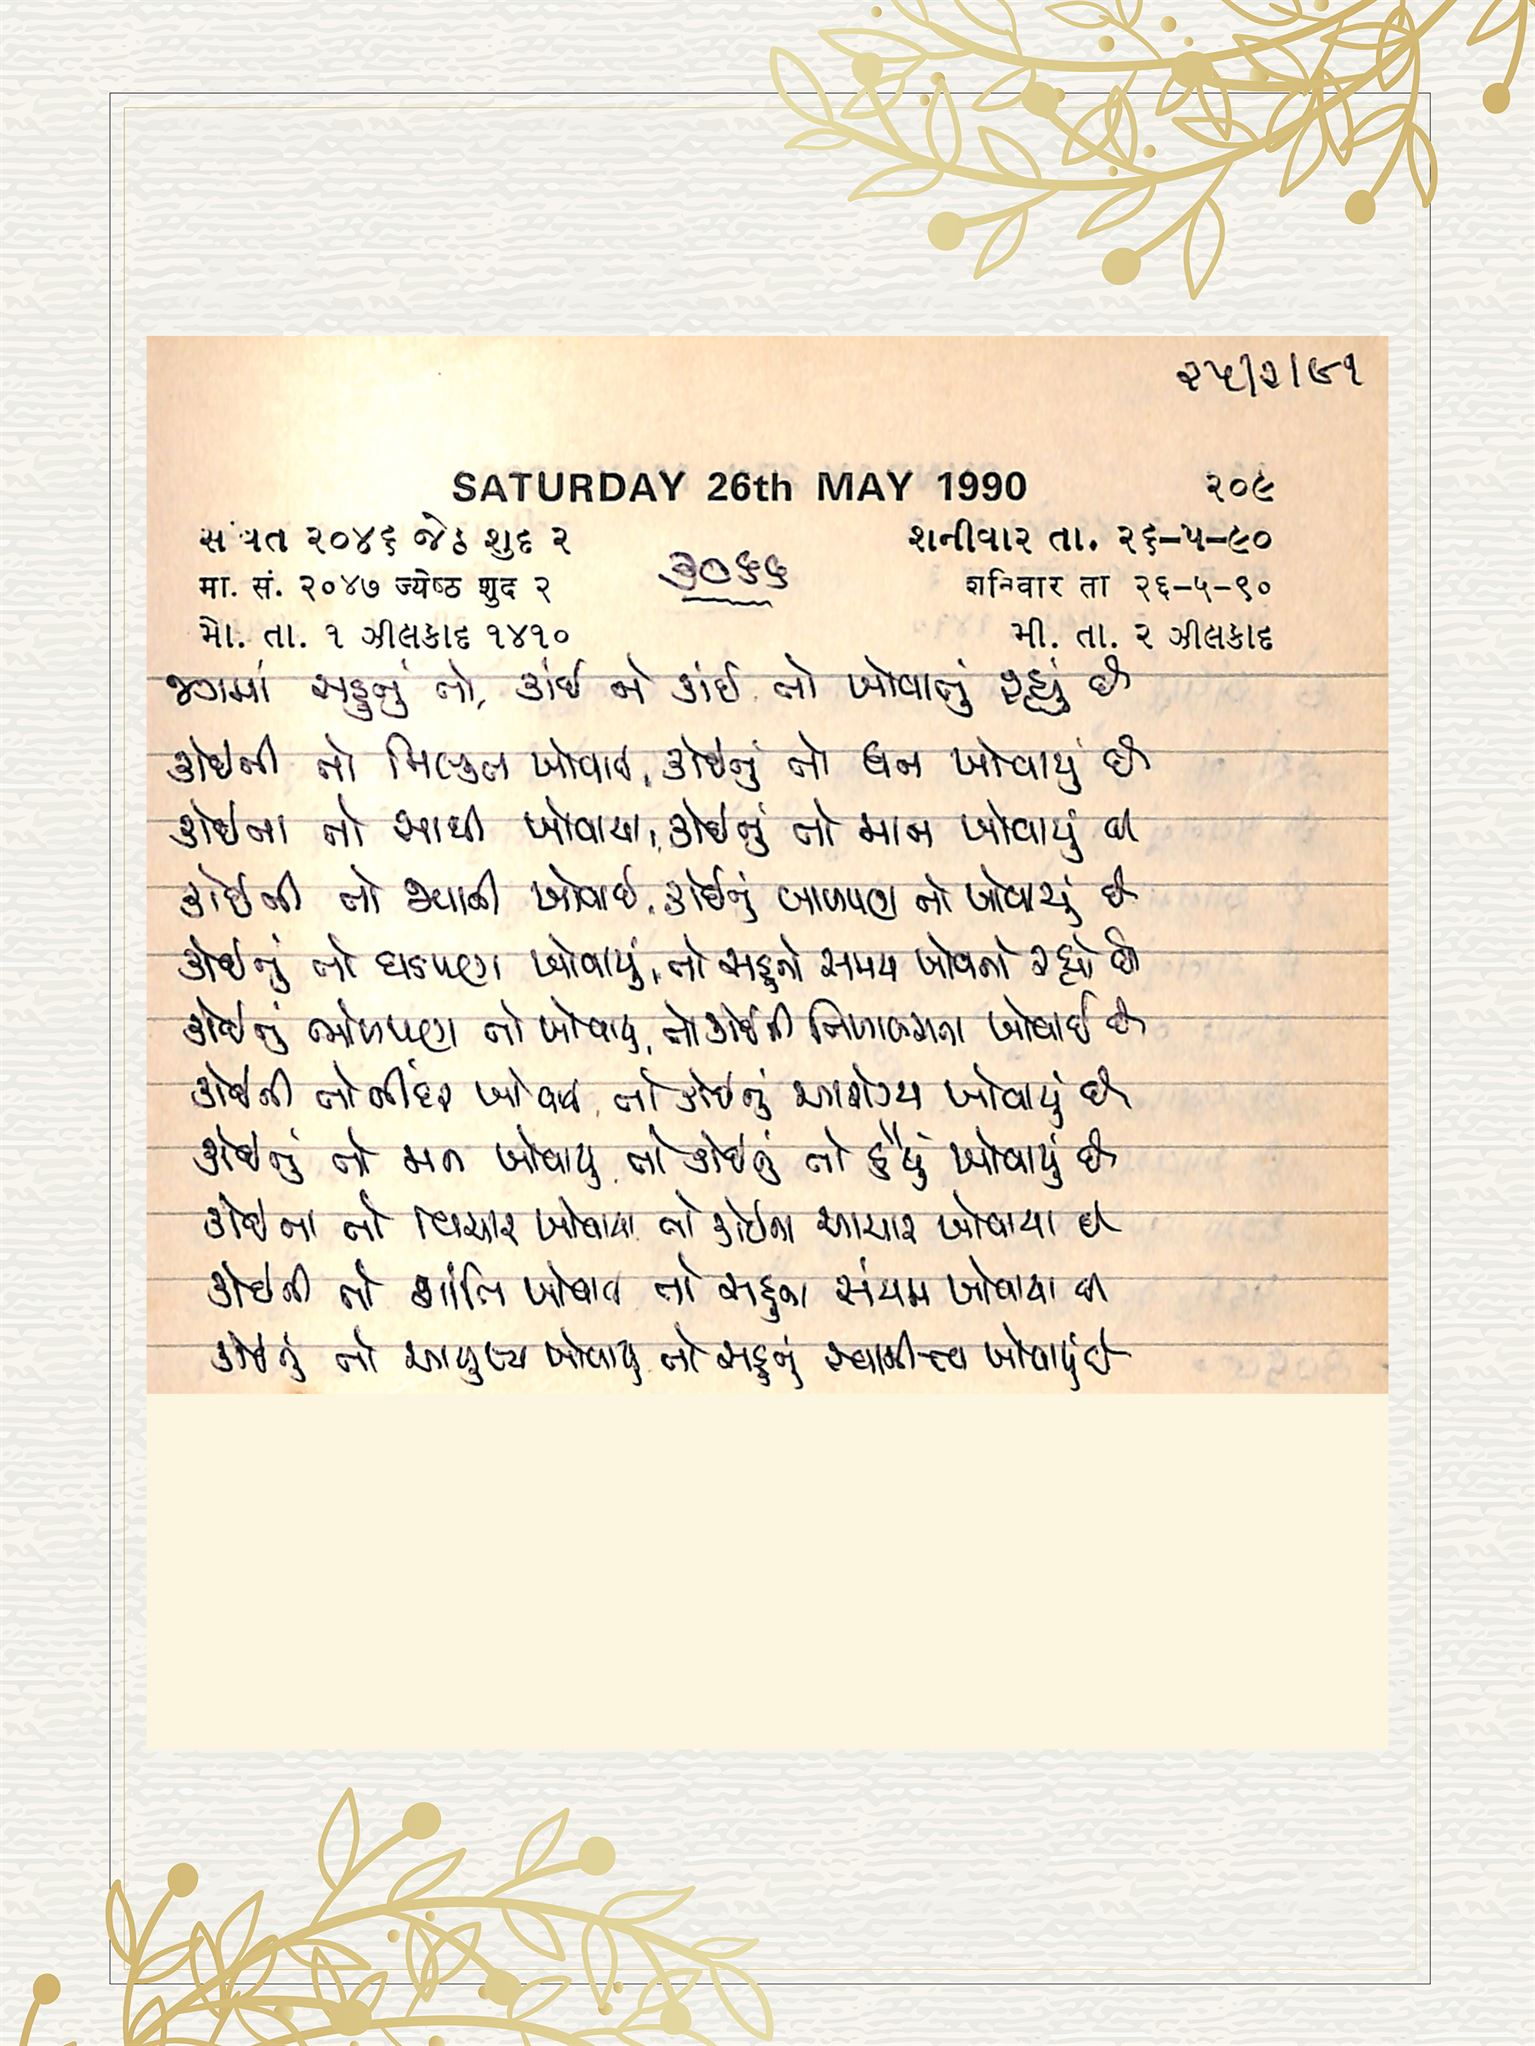 ૨૫/૨/૯૧
SATURDAY 26th MAY 1990 ૨૦૯
સંવત ૨૦૪૬ જેઠ શુદ ૨ શનીવાર તા. ૨૬-૫-૯૦
૩૦૬૬
मा. सं. २०४७ ज्येष्ठ शुद २ शनिवार ता २६-५-९०
મૌ. તા. ૧ ઝીલકાદ ૧૪૧૦ મી. તા. ૨ ઝીલકાદ
જગમાં સહુનું તો, કાંઈ ને કાંઈ તો ખોવાતું રહ્યું છે
કોઈની તો મિલ્કત ખોવાઈ, કોઈનું તો ધન ખોવાયું છે
કોઈના તો સાથી ખોવાયા, કોઈનું તો માન ખોવાયું છે
કોઈની તો જવાની ખોવાઈ, કોઈનું બાળપણ તો ખોવાયું છે
કોઈનું તો ઘડપણ ખોવાયું, તો સહુનો સમય ખોવાતો રહ્યો છે
કોઈનું ભોળપણ તો ખોવાયુ, તો કોઈની નિખાલસતા ખોવાઈ છે
કોઈની તો નીંદર ખોવાઈ, તો કોઈનું આરોગ્ય ખોવાયું છે
કોઈનું તો મન ખોવાયુ, તો કોઈનું તો હૈયું ખોવાયું છે
કોઈના તો વિચાર ખોવાયા તો કોઈના આચાર ખોવાયા છે
કોઈની તો શાંતિ ખોવાઈ તો સહુના સંયમ ખોવાયા છે
કોઈનું તો આયુષ્ય ખોવાયુ તો સહુનું સ્વામીત્વ ખોવાયું છે